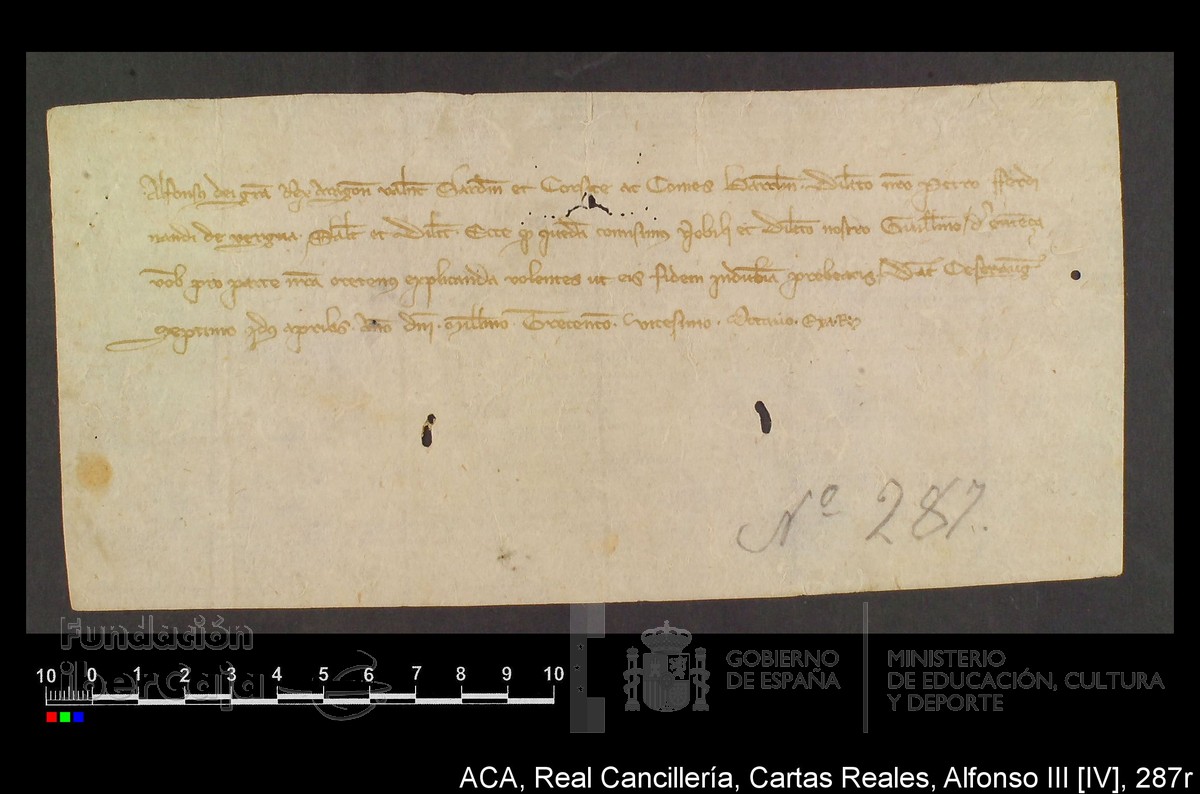 Alfonsus dei gra Rex Aragon Valent Sardin et Corsice ac Comes Barchn. Dilecto nro Petro fferdi
nandi de vergua. Salt et Dilect. Ecce qd quedam comisimus Nobili et dilecto nostro Guillmo d
vob pro parte nra explicanda volentes ut eis fidem indubiam prebeatis. Dat Cesarauguste
septimo idus aprilis. Anno dni. Millmo. Trecentmo. vicesimo. Octavo.
Nº 287.
Fundación
iberCaja
10 0 1 2 3 4 5 6 7 8 9 10
GOBIERNO
DE ESPAÑA
MINISTERIO
DE EDUCACIÓN, CULTURA
Y DEPORTE
ACA, Real Cancillería, Cartas Reales, Alfonso III [IV], 287r